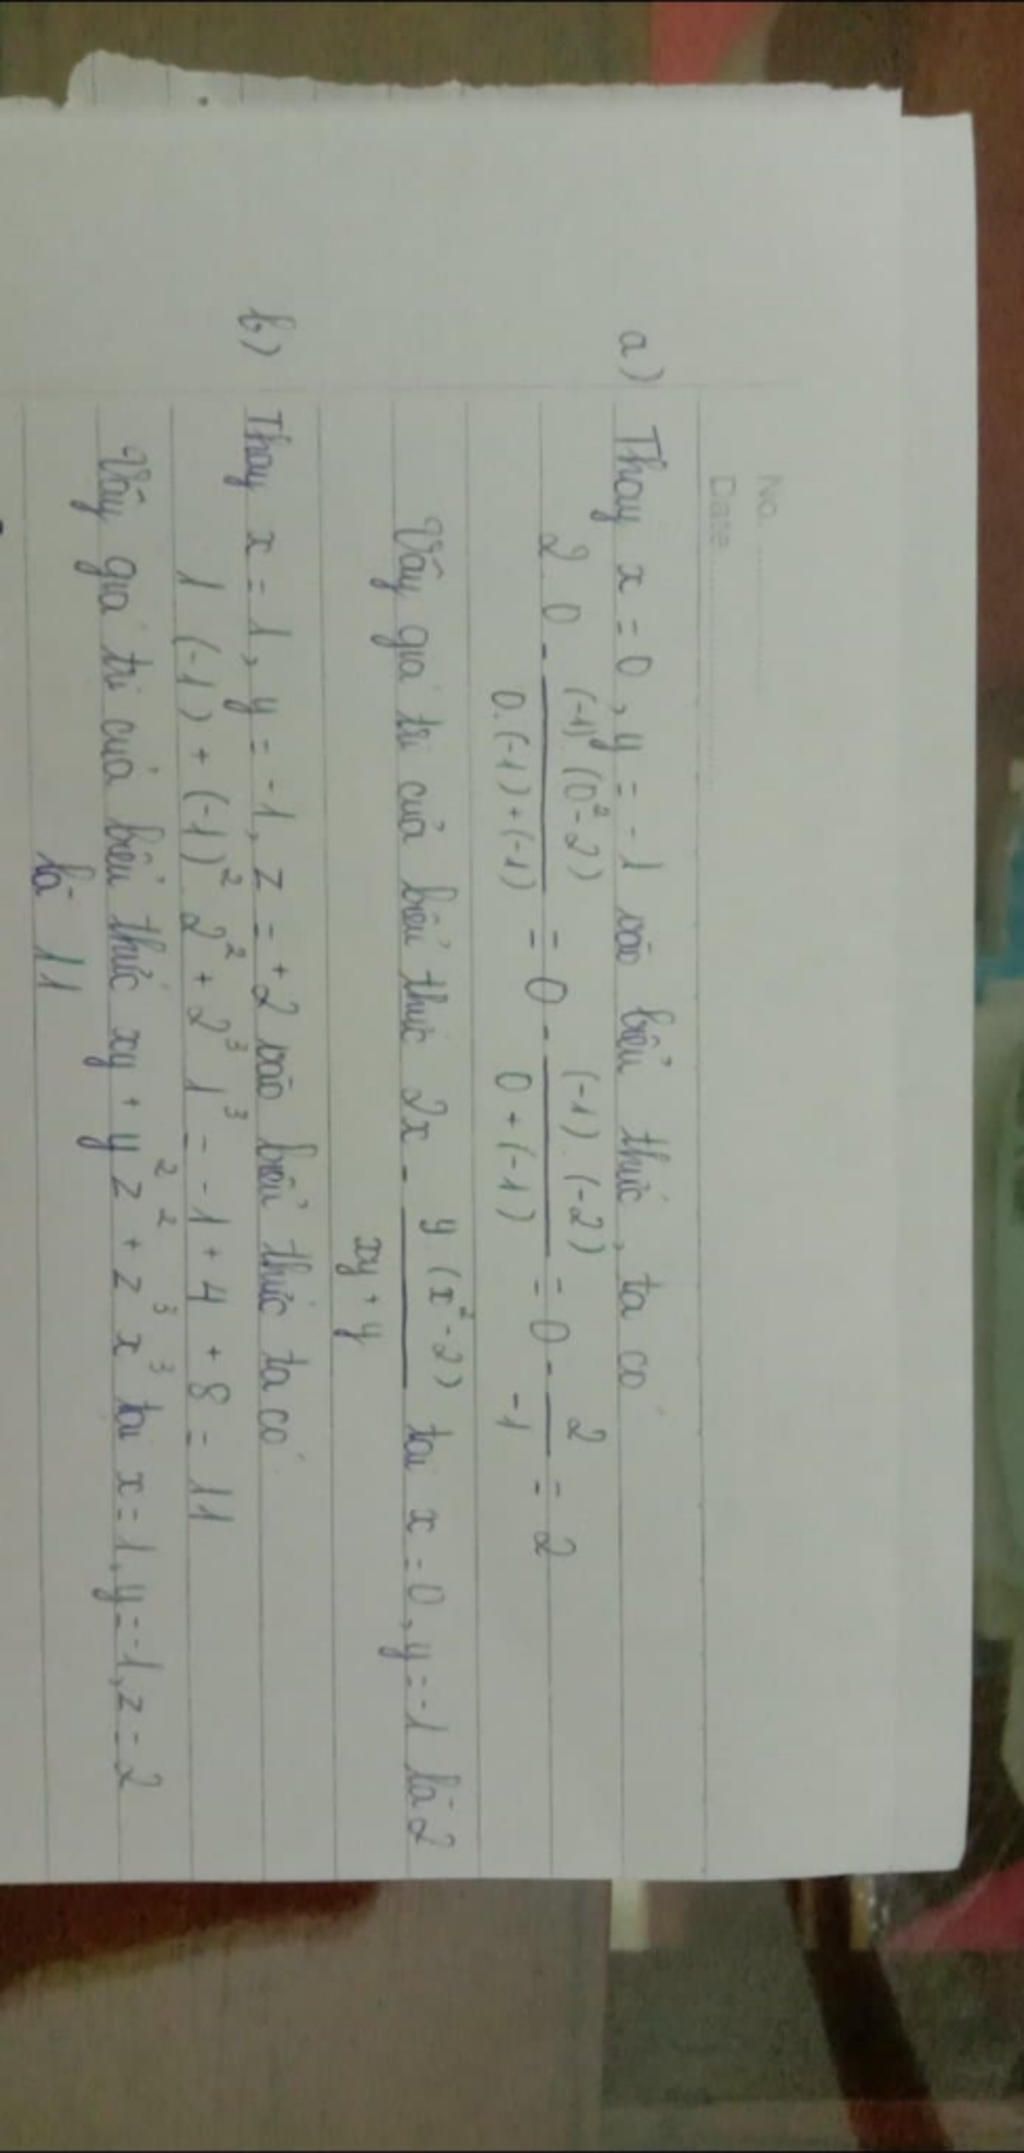 No. ................
Date ................
a) Thay x = 0, y = -1 vào biểu thức, ta có
2.0 - (-1).(0² - 2) / 0.(-1) + (-1) = 0 - (-1).(-2) / 0 + (-1) = 0 - 2 / -1 = 2
Vậy giá trị của biểu thức 2x - y(x² - 2) / xy + y tại x = 0, y = -1 là 2
b) Thay x = 1, y = -1, z = +2 vào biểu thức ta có
1 (-1) + (-1)² 2² + 2³ 1³ = -1 + 4 + 8 = 11
Vậy giá trị của biểu thức xy + y² z² + z³ x³ tại x = 1, y = -1, z = 2
là 11